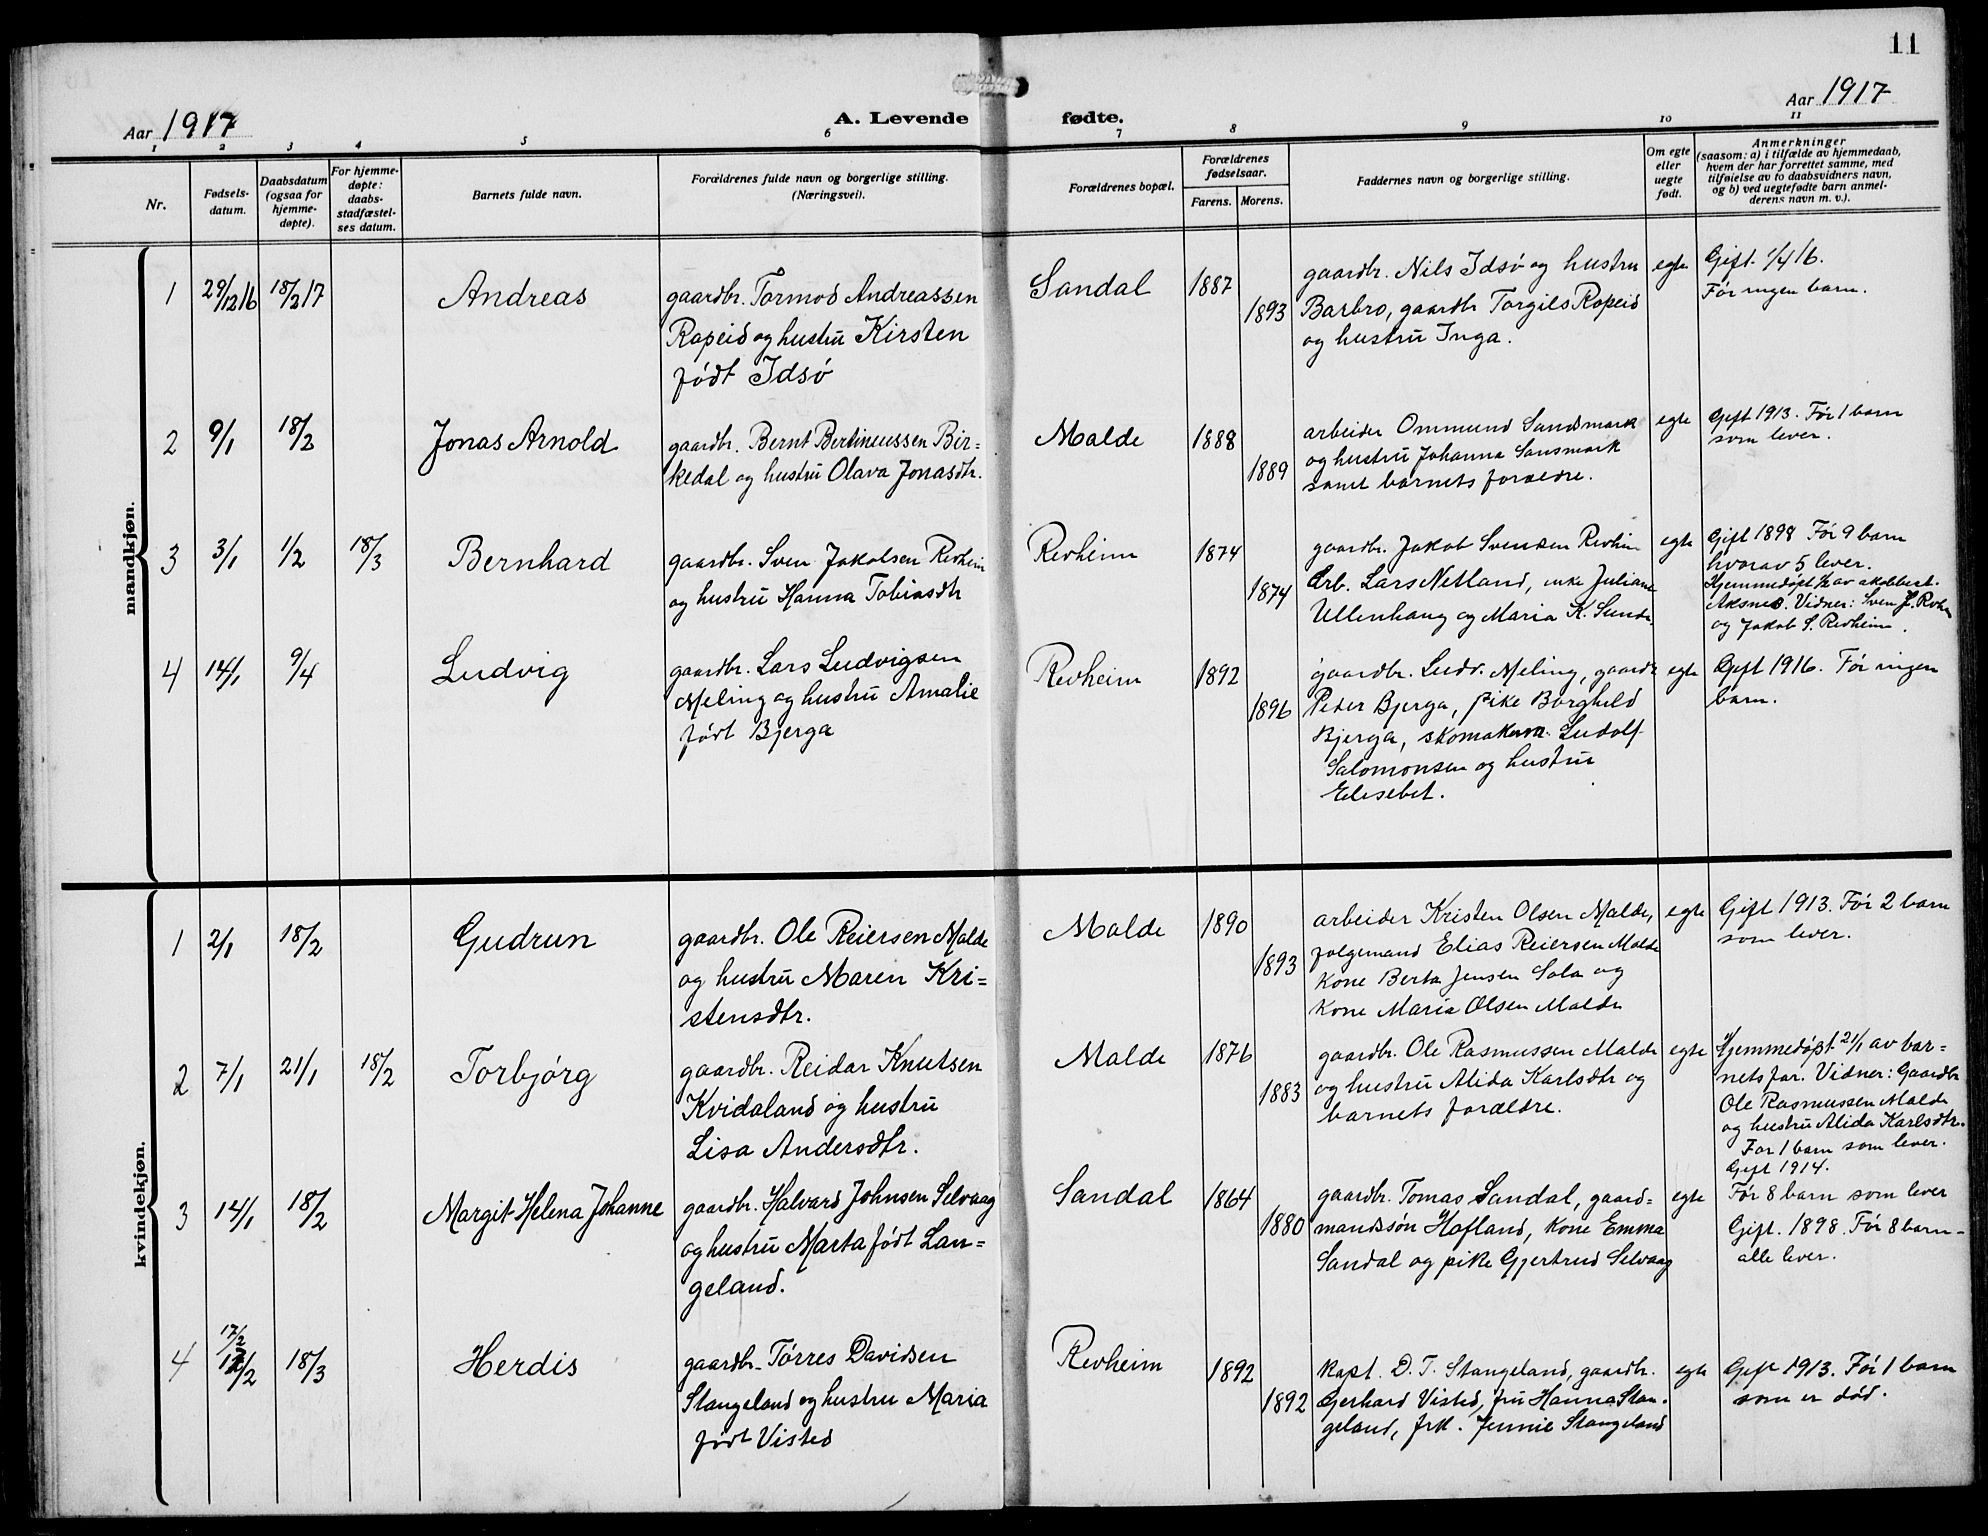 11
Aar 1917
A. Levende fødte.
Aar 1917
1 2 3 4 5 6 7 8 9 10 11
Nr.
Fødsels-
datum.
Daabsdatum
(ogsaa for
hjemme-
døpte).
For hjemme-
døpte:
daabs-
stadfæstel-
ses datum.
Barnets fulde navn.
Forældrenes fulde navn og borgerlige stilling.
(Næringsvei).
Forældrenes bopæl.
Forældrenes
fødselsaar.
Farens. Morens.
Faddernes navn og borgerlige stilling.
Om egte
eller
uegte
født.
Anmerkninger
(saasom: a) i tilfælde av hjemmedaab,
hvem der har forrettet samme, med
tilføielse av to daabsvidners navn,
og b) ved uegtefødte barn anmel-
derens navn m. v.).
mandkjøn.
1 29/12 16 18/2 17 Andreas
gaardbr. Tormod Andreassen
Rapeid og hustru Kirsten
født Idsø
Sandal 1887 1893
gaardbr. Nils Idsø og hustru
Barbro, gaardbr Torgils Rapeid
og hustru Inga.
egte
Gift 1/4 16.
Før ingen barn.
2 9/1 18/2 Jonas Arnold
gaardbr. Bernt Bertineussen Bir=
kedal og hustru Olava Jonasdtr.
Malde 1888 1889
arbeider Ommund Sandsmark
og hustru Johanna Sansmark
samt barnets forældre.
egte
Gift 1913. Før 1 barn
som lever.
3 3/1 1/2 18/3 Bernhard
gaardbr. Sven Jakobsen Revheim
og hustru Hanna Tobiasdtr
Revheim 1874 1874
gaardbr. Jakob Svendsen Revheim
Arb. Lars Netland, enke Juliane
Ullenhaug og Maria K. Sunde.
egte
Gift 1898 Før 9 barn
hvorav 5 lever.
Hjemmedøpt 1/2 av
Aksnes. Vidner: Sven J. Revheim
og Jakob S. Revheim.
4 14/1 9/4 Ludvig
gaardbr. Lars Ludvigsen
Meling og hustru Amalie
født Bjerga
Revheim 1892 1896
gaardbr. Ludv. Meling, gaardbr
Peder Bjerga, pike Borghild
Bjerga, skomakerm. Ludolf
Salomonsen og hustru
Elisebet.
egte
Gift 1916. Før ingen
barn.
kvindekjøn.
1 2/1 18/2 Gudrun
gaardbr. Ole Reiersen Malde
og hustru Maren Kri=
stensdtr.
Malde 1890 1893
arbeider Kristen Olsen Malde,
følgemand Elias Reiersen Malde
Kone Berta Jensen Sola og
Kone Maria Olsen Malde
egte
Gift 1913. Før 2 barn
som lever.
2 7/1 21/1 18/2 Torbjørg
gaardbr. Reidar Knutsen
Kvidaland og hustru
Lisa Andersdtr.
Malde 1876 1883
gaardbr. Ole Rasmussen Malde
og hustru Alida Karlsdtr og
barnets forældre.
egte
Hjemmedøpt 21/1 av bar=
nets far. Vidner: Gaardbr
Ole Rasmussen Malde
og hustru Alida Karlsdtr.
For 1 barn som lever.
Gift 1914.
3 14/1 18/2 Margit Helena Johanne
gaardbr. Halvard Johnsen Selvaag
og hustru Marta født Lan=
geland.
Sandal 1864 1880
gaardbr. Tomas Sandal, gaard=
mandssøn Hafland, Kone Emma
Sandal og pike Gjertrud Selvaag
egte
Før 8 barn som lever
Gift. 1898. Før 8 barn -
alle lever.
4 17/2 18/3 Herdis
gaardbr. Tørres Davidsen
Stangeland og hustru Maria
født Visted
Revheim 1892 1892
Kapt. D. T. Stangeland, gaardbr.
Gerhard Visted, fru Hanna Stan-
geland, frk. Jennie Stangeland
egte
Gift 1913. Før 1 barn
som er død.